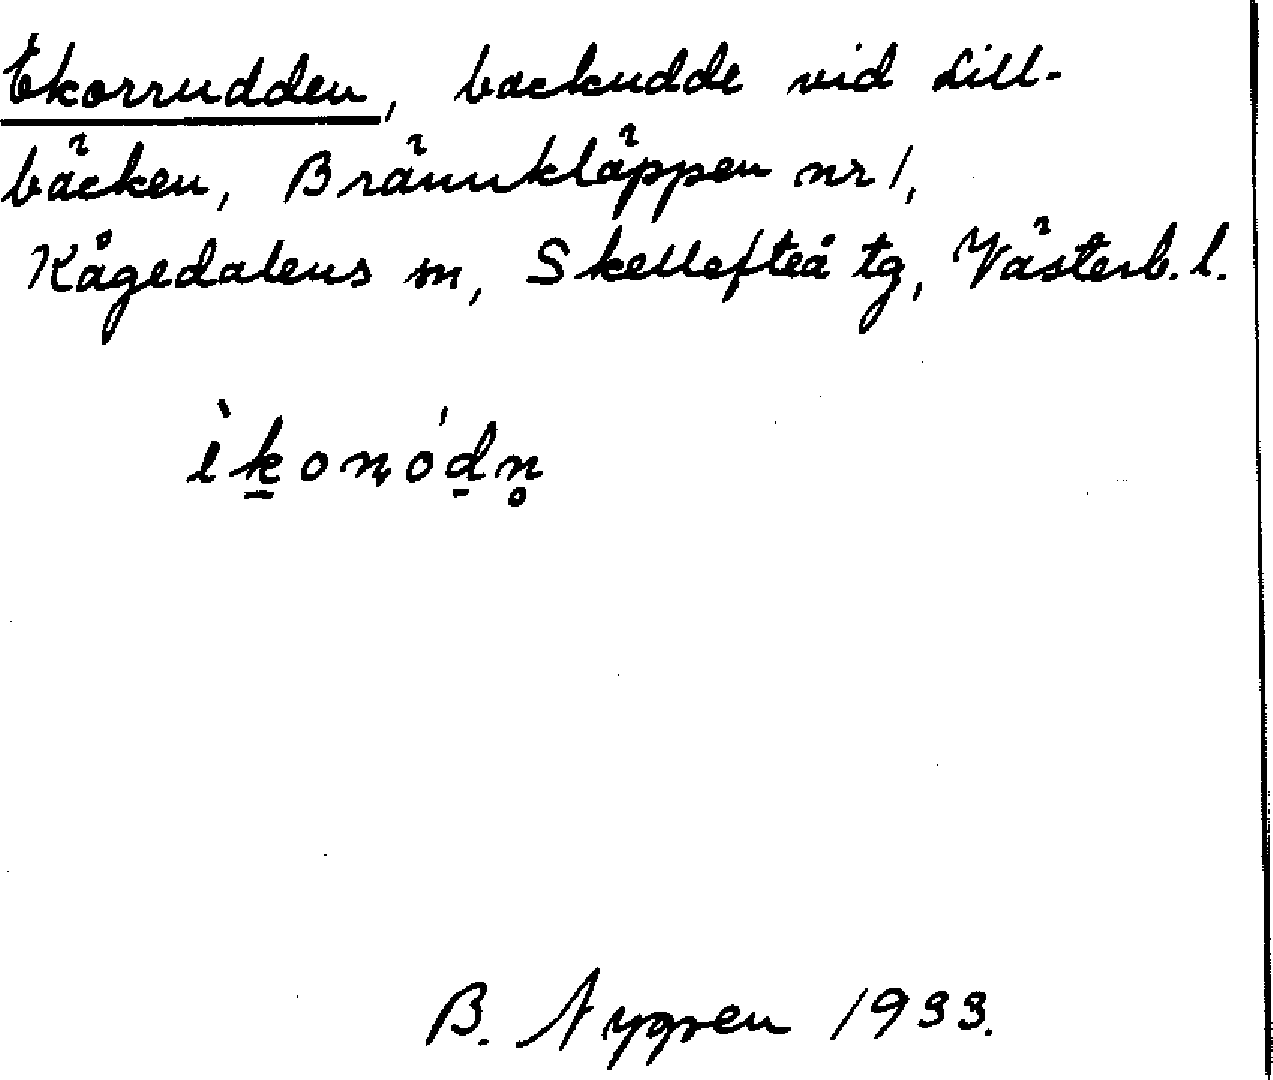 Ekorrudden, backudde vid Lill-
bäcken, Brännkläppen nr 1,
Kågedalens m, Skellefteå tg, Västerb. l.
ìk̠onọ́d̠n̥
B. Nygren 1933.